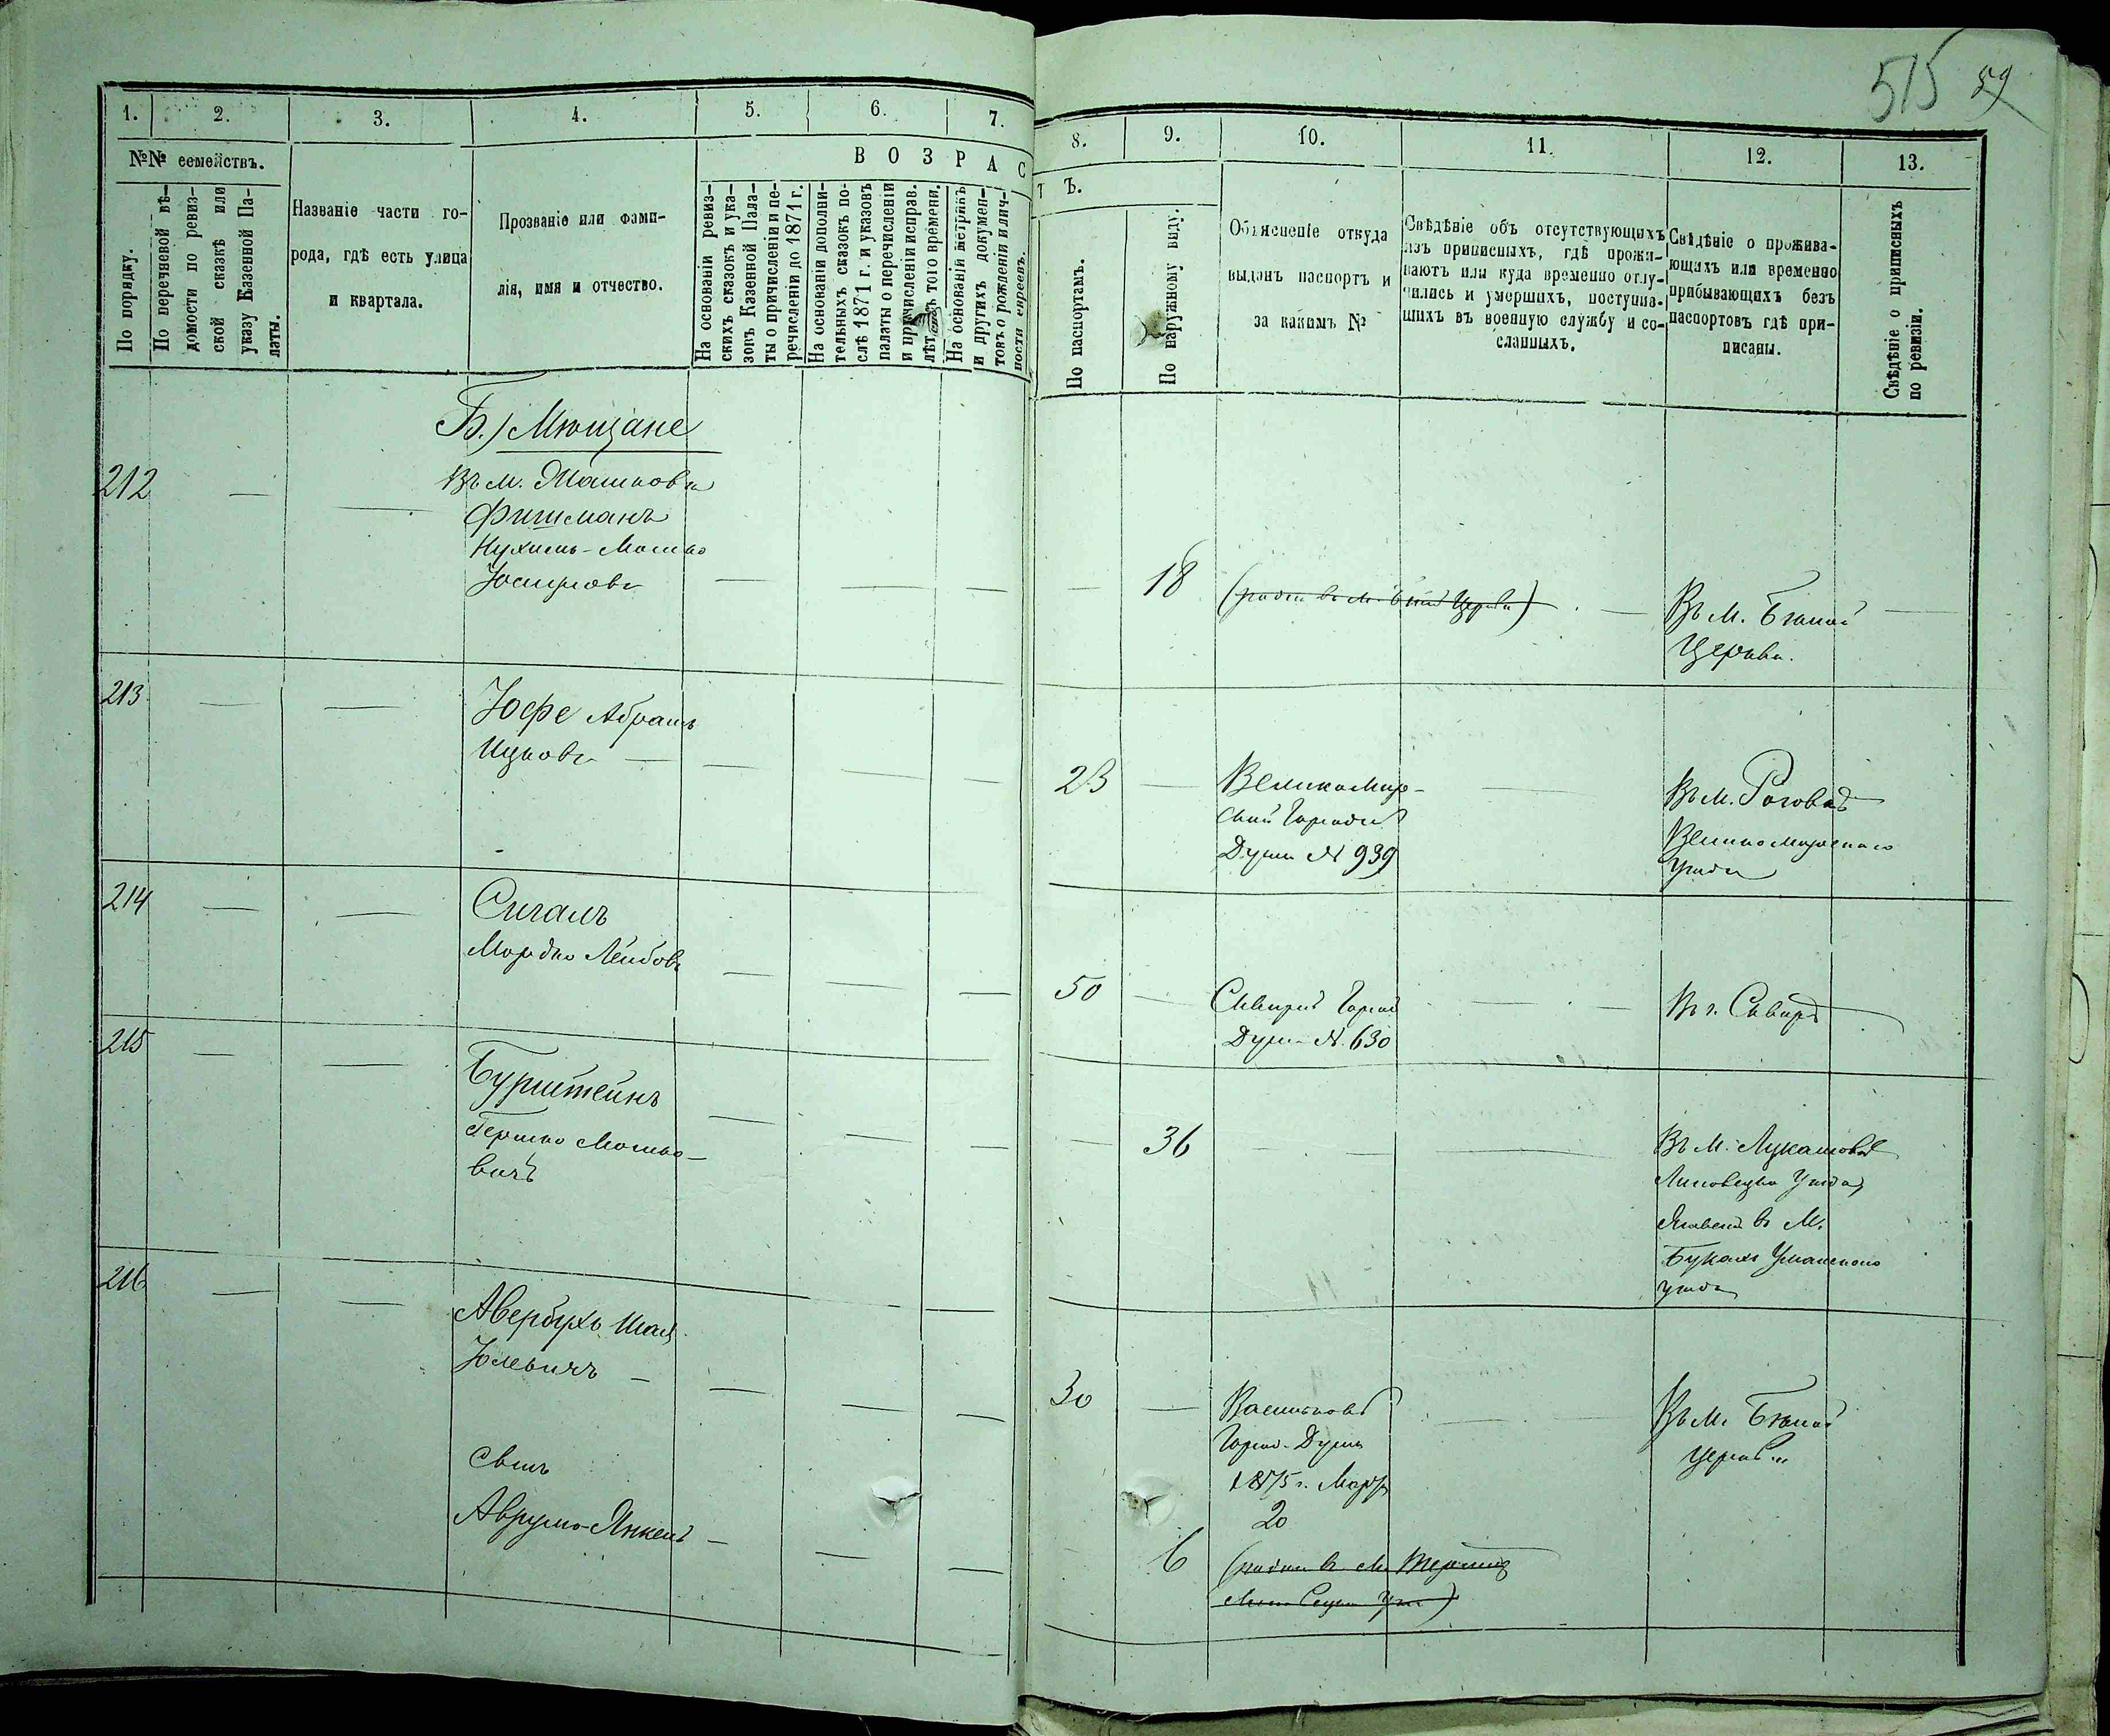 515 59
1. 2. 3. 4. 5. 6. 7. 8. 9. 10. 11. 12. 13.
№№ семействъ.
По порядку.
По перечневой вѣ-
домости по ревиз-
ской сказкѣ или
указу Казенной Па-
латы.
Названіе части го-
рода, гдѣ есть улица
и квартала.
Прозваніе или фами-
лія, имя и отчество.
ВОЗРАСТЪ.
На основаніи ревиз-
скихъ сказокъ и ука-
зовъ Казенной Пала-
ты о причисленіи и пе-
речисленіи до 1871 г.
На основаніи дополни-
тельныхъ сказокъ по-
слѣ 1871 г. и указовъ
палаты о перечисленіи
и причисленіи исправ.
лѣтъ того времени.
На основаніи метрикъ
и другихъ докумен-
товъ о рожденіи и лич-
ности евреевъ.
По паспортамъ.
По наружному виду.
Объясненіе откуда
выданъ паспортъ и
за какимъ №
Свѣдѣніе объ отсутствующихъ
изъ приписныхъ, гдѣ прожи-
ваютъ или куда временно отлу-
чились и умершихъ, поступив-
шихъ въ военную службу и со-
сланныхъ.
Свѣдѣніе о прожива-
ющихъ или временно
прибывающихъ безъ
паспортовъ гдѣ при-
писаны.
Свѣдѣніе о приписныхъ
по ревизіи.
Б.) Мѣщане
212 — — Въ м.
Фишманъ
Мошко
Юсиповъ — — — — 18 — Въ м. Бѣлой
Церкви. —
213 — — Юфе Абрамъ
Ицковъ — — — — 23 — Великомир-
ской Городс
Думы № 939 — Въ м.
Уѣзда
214 — — Сигалъ
Мордко Лейбовъ — — — 50 — Сквирс Город
Думы № 630 — — Въ г. Сквирѣ
215 — — Бурштейнъ
Гершко Мошко-
вичъ — — — — 36 — — — Въ м. Лукашовкѣ
Липовецка Уѣзда,
въ м.
Букахъ Уманскаго
уѣзда
216 — — Авербухъ Шая
Юлевичъ — — — — 30 — Васильковс
Город. Думы
1875 г. Март
20 — — Въ м. Бѣлой
Церкв
Сынъ
Аврумъ-Янкель — — — — 6